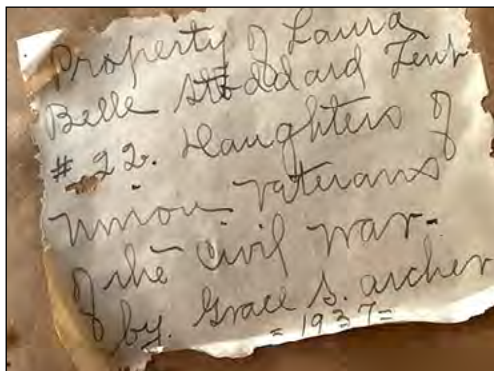 Property of Laura
Belle Stoddard Tent
# 22. Daughters of
Union Vaterans
of the Civil War.
by. Grace S. archer
= 1937=